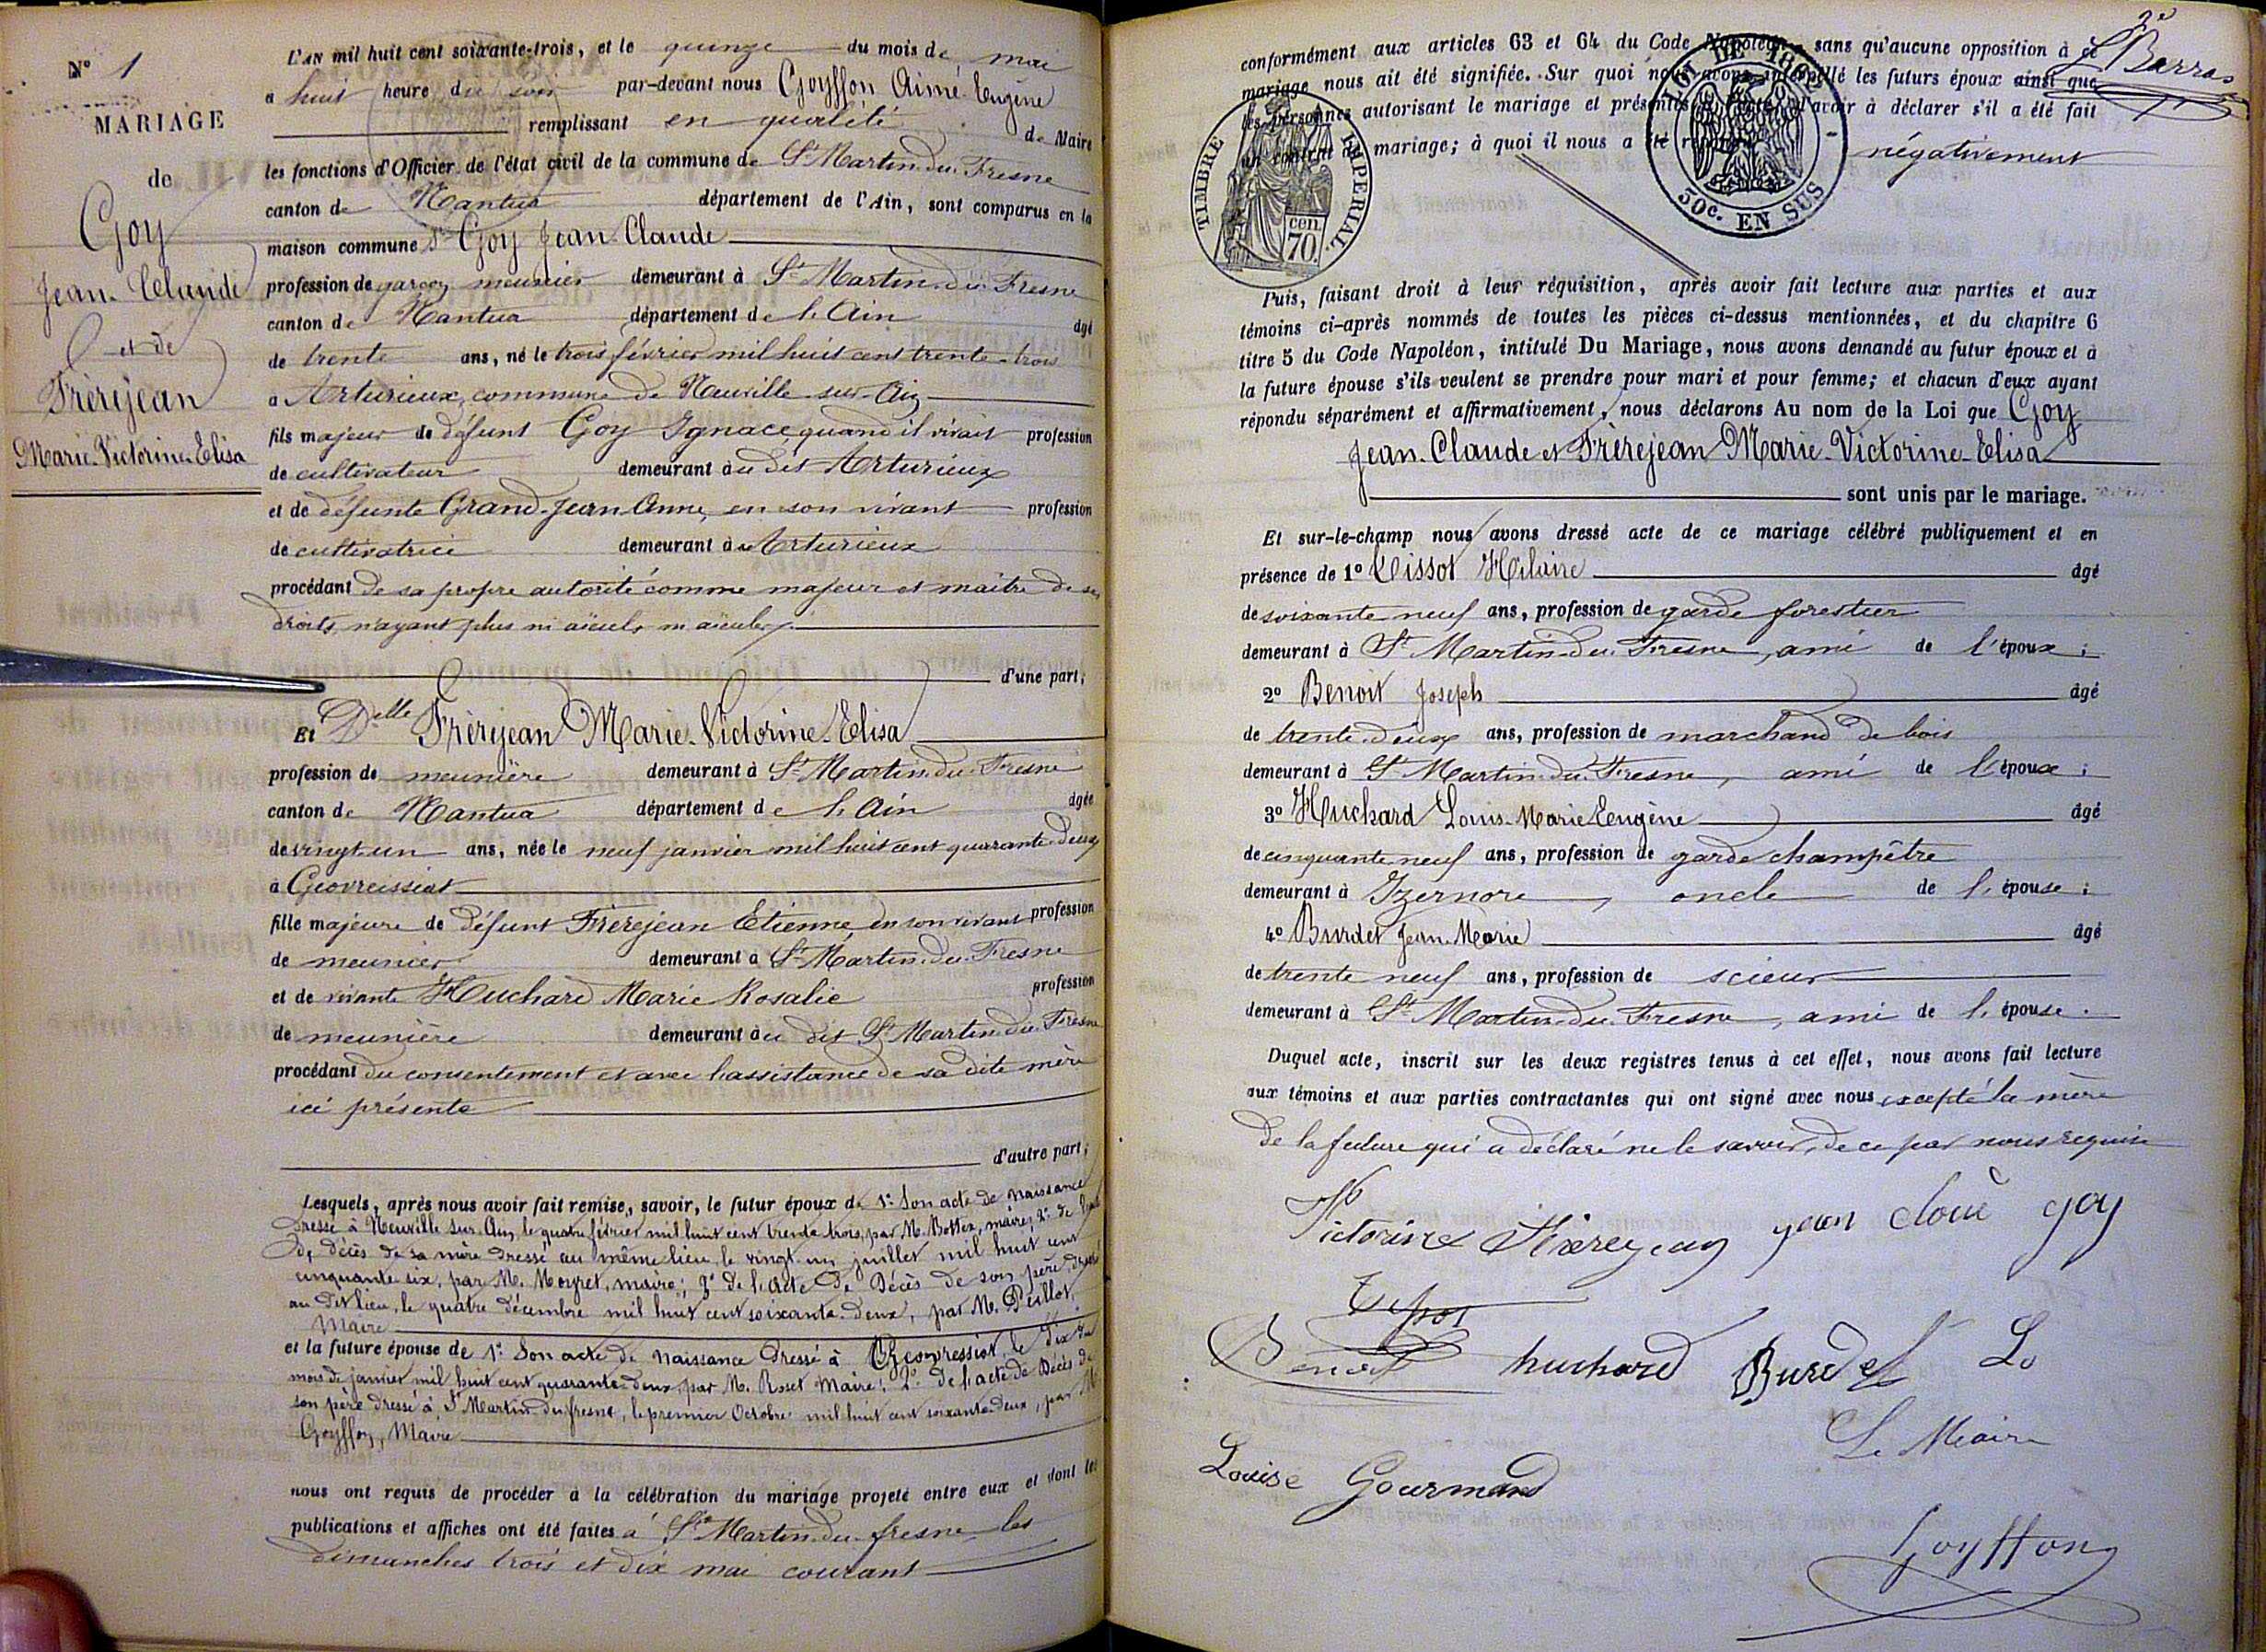 N° 1
MARIAGE
de
Goy
Jean-Claude
et de
Frèrejean
Marie-Victorine-Elisa
L'AN mil huit cent soixante-trois, et le quinze du mois de mai
a huit heure du soir par-devant nous Goyffon Aimé-Eugène
remplissant en qualité de Maire
les fonctions d'Officier de l'état civil de la commune de St Martin-du-Fresne
canton de Nantua département de l'Ain, sont comparus en la
maison commune Sr Goy Jean-Claude
profession de garçon meunier demeurant à St Martin-du-Fresne
canton de Nantua département de l'Ain âgé
de trente ans, né le trois février mil huit cent trente-trois
a Arturieux, commune de Neuville-sur-Ain
fils majeur de défunt Goy Ignace, quand il vivait profession
de cultivateur demeurant au dit Arturieux
et de défunte Grand-Jean Anne, en son vivant profession
de cultivatrice demeurant à Arturieux
procédant de sa propre autorité comme majeur et maître de ses
droits, n'ayant plus ni aïeuls ni aïeules
d'une part;
Et Delle Frèrejean Marie-Victorine-Elisa
profession de meunière demeurant à St Martin-du-Fresne
canton de Nantua département de l'Ain âgée
de vingt-un ans, née le neuf janvier mil huit cent quarante-deux
à Géovreissiat
fille majeure de défunt Frèrejean Etienne, en son vivant profession
de meunier demeurant à St Martin-du-Fresne
et de vivante Huchard Marie Rosalie profession
de meunière demeurant au dit St Martin-du-Fresne
procédant du consentement et avec l'assistance de sa dite mère
ici présente
d'autre part;
Lesquels, après nous avoir fait remise, savoir, le futur époux de 1° Son acte de naissance
dressé à Neuville-sur-Ain, le quatre février mil huit cent trente-trois, par M. Bottex, maire; 2° de l'acte
de décès de sa mère dressé au même lieu, le vingt-un juillet mil huit cent
cinquante-six, par M. Moyret, maire; 3° de l'acte de décès de son père dressé
au dit lieu, le quatre décembre mil huit cent soixante-deux, par M. Pillot,
Maire
et la future épouse de 1° Son acte de naissance dressé à Géovressiat, le dix du
mois de janvier mil huit cent quarante-deux, par M. Rosset Maire; 2° de l'acte de décès de
son père dressé à St Martin-du-fresne, le premier Octobre mil huit cent soixante-deux, par M.
Goyffon, Maire
nous ont requis de procéder à la célébration du mariage projeté entre eux et dont les
publications et affiches ont été faites à St Martin-du-fresne les
dimanches trois et dix mai courant
2e
Barras
conformément aux articles 63 et 64 du Code Napoléon, sans qu'aucune opposition à ce
mariage nous ait été signifiée. Sur quoi nous avons interpellé les futurs époux ainsi que
les personnes autorisant le mariage et présentes à l'acte, d'avoir à déclarer s'il a été fait
un contrat de mariage; à quoi il nous a été répondu négativement
TIMBRE IMPERIAL.
cen
70.
LOI DE 1862
50c. EN SUS
Puis, faisant droit à leur réquisition, après avoir fait lecture aux parties et aux
témoins ci-après nommés de toutes les pièces ci-dessus mentionnées, et du chapitre 6
titre 5 du Code Napoléon, intitulé Du Mariage, nous avons demandé au futur époux et à
la future épouse s'ils veulent se prendre pour mari et pour femme; et chacun d'eux ayant
répondu séparément et affirmativement, nous déclarons Au nom de la Loi que Goy
Jean-Claude et Frèrejean Marie-Victorine-Elisa
sont unis par le mariage.
Et sur-le-champ nous avons dressé acte de ce mariage célébré publiquement et en
présence de 1° Tissot Hilaire âgé
de soixante neuf ans, profession de garde forestier
demeurant à St Martin-du-Fresne, ami de l'époux;
2° Benoit Joseph âgé
de trente-deux ans, profession de marchand de bois
demeurant à St Martin-du-Fresne, ami de l'époux;
3° Huchard Louis-Marie-Eugène âgé
de cinquante neuf ans, profession de garde champêtre
demeurant à Izernore, oncle de l'épouse;
4° Burdet Jean-Marie âgé
de trente neuf ans, profession de scieur
demeurant à St Martin-du-Fresne, ami de l'épouse.
Duquel acte, inscrit sur les deux registres tenus à cet effet, nous avons fait lecture
aux témoins et aux parties contractantes qui ont signé avec nous excepté la mère
de la future qui a déclaré ne le savoir, de ce par nous requise
Victorine Frèrejean jean cloue goy
Tissot
Benoit huchard Burdet Lo
Le Maire
Louise Gourmand
Goyffon